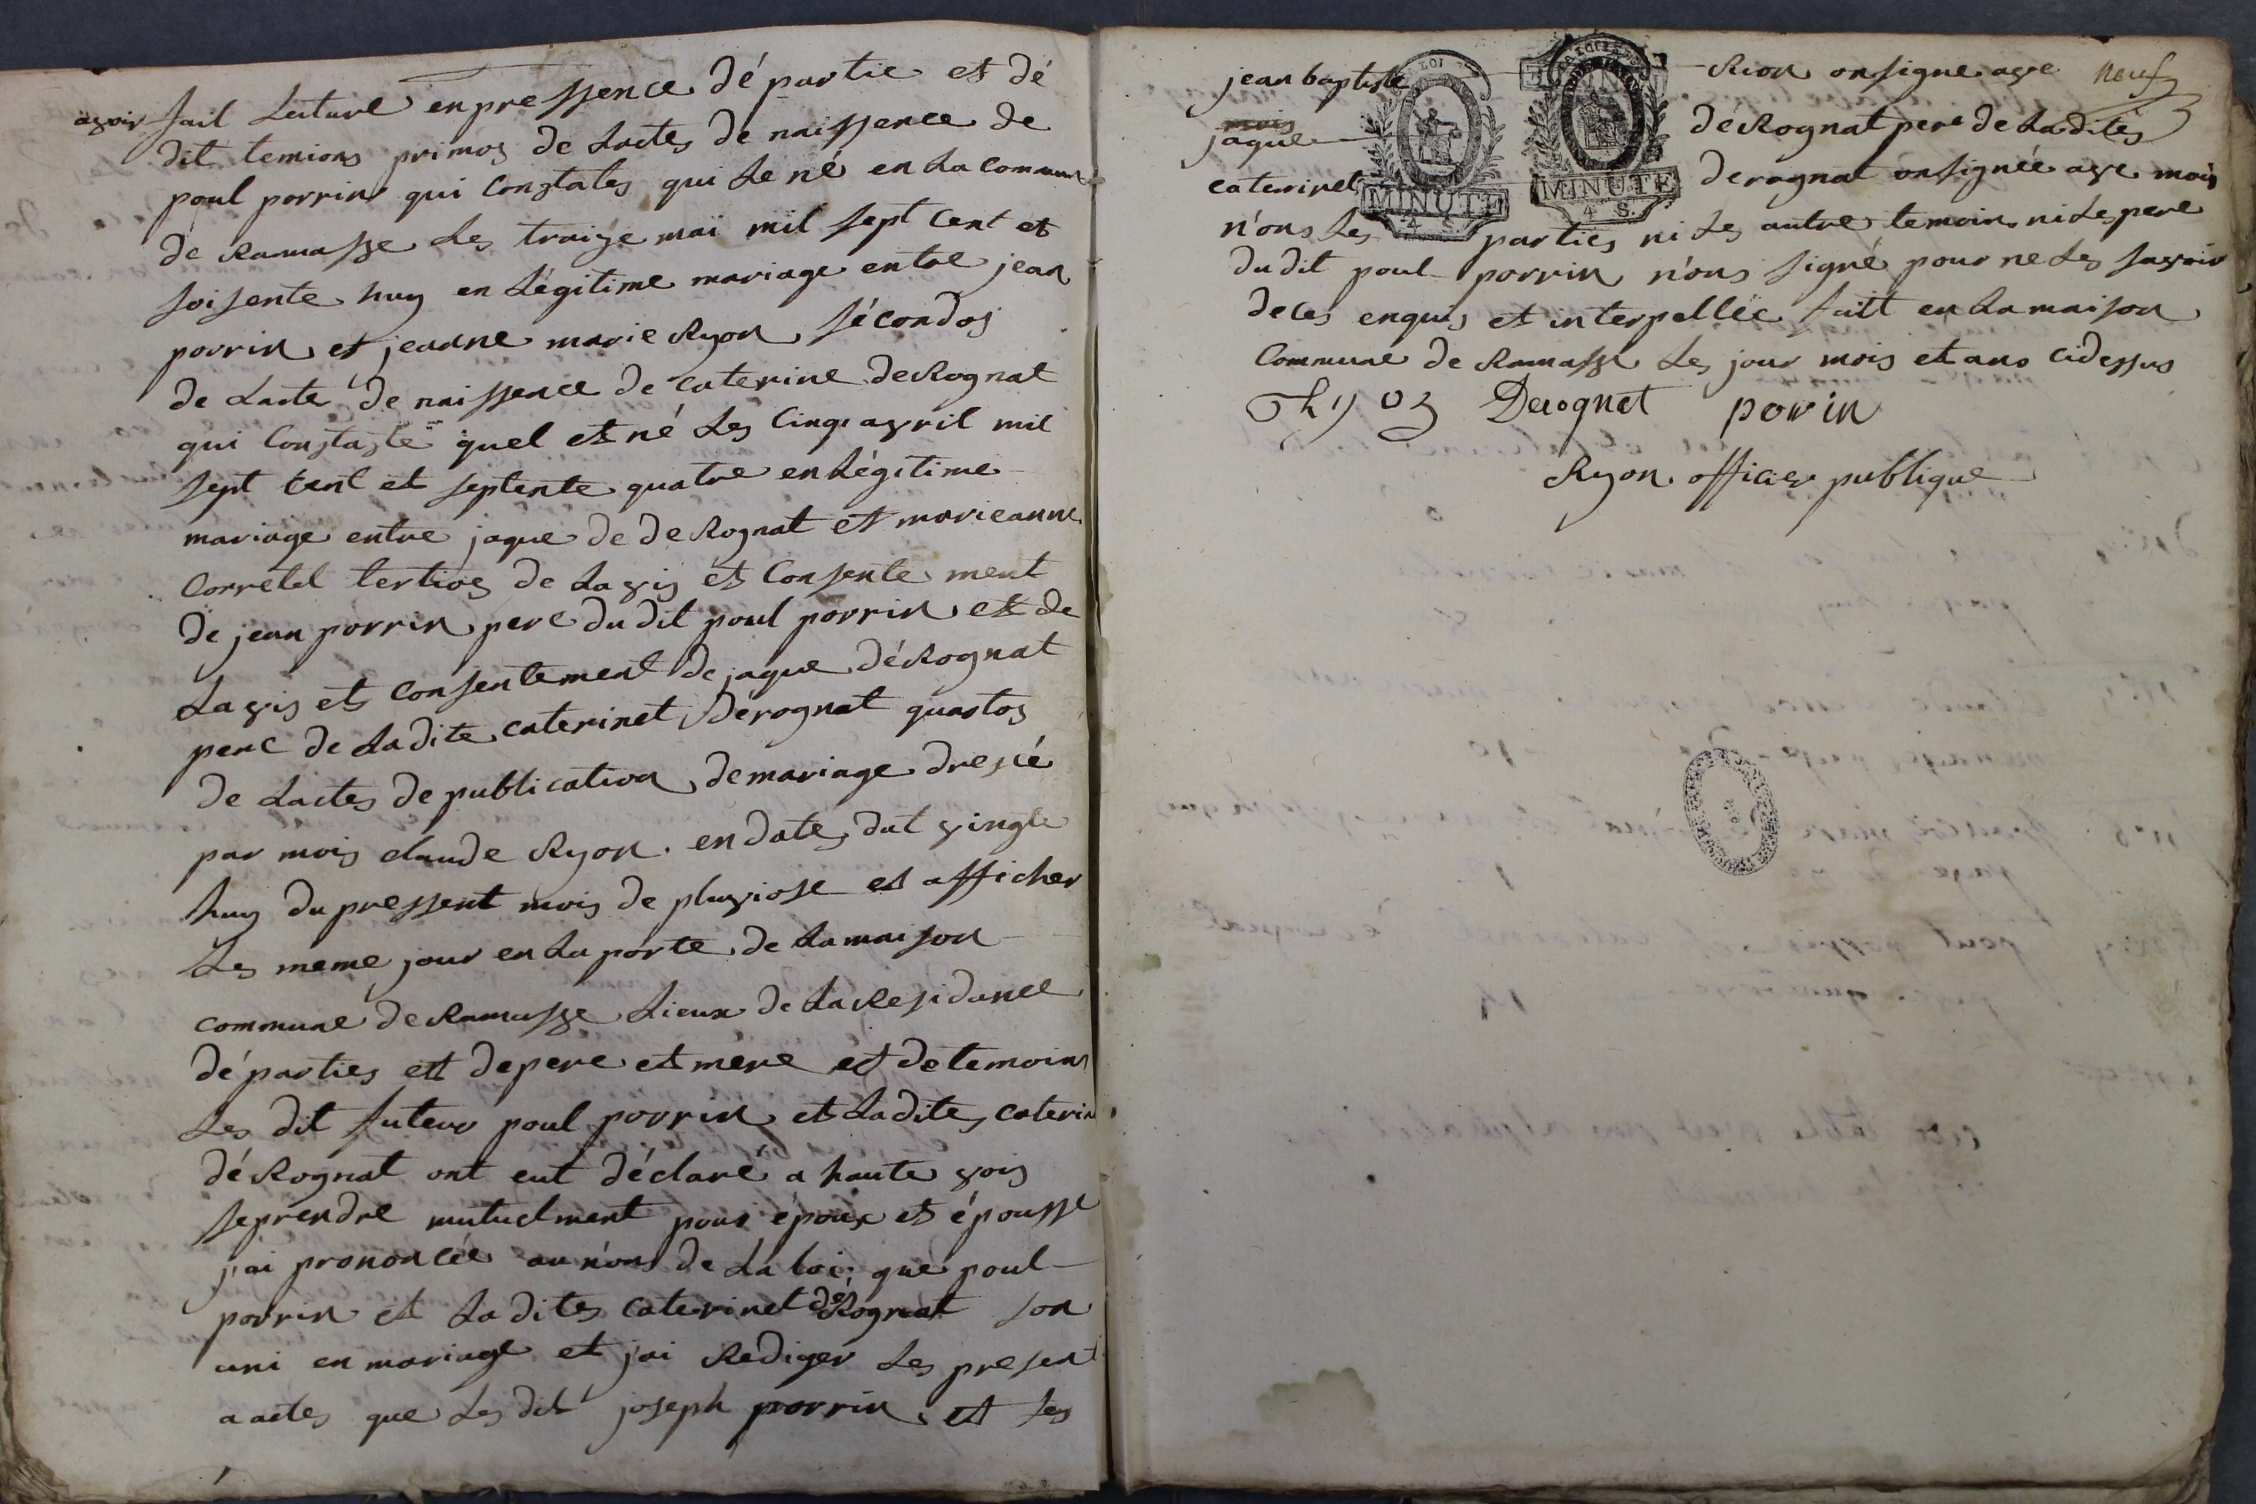 avoir fait Lecture enpressence dé partie et dé
dit temions primos de Lactes de naissence de
poul porrin qui Constates qui Le né en La commune
de Ramasse Les traize mai mil sept Cent et
soisente huy en Légitime mariage entre jean
porrin et jeanne marie Ryon sécondos
de Lacte de naissence de Caterine deRognat
qui Constaste quel et né Les Cinq avril mil
sept Cent et septente quatre en Légitime
mariage entre jaque de deRognat et marieanne
Corretel tertios de Lavis et Consente ment
de jean porrin pere du dit poul porrin et de
Lavis et Consentement de jaque déRognat
pere de Ladite caterinet Derognat quartos
de Lactes de publication de mariage drescé
par mois claude Ryon. en dates dut vingte
huy du pressent mois de pluviose et afficher
Les meme jour en La porte de La maison
commune de Ramasse Lieux de La Residance
dé parties ett de pere et mere et de temoins
Les dit futeur poul porrin et Ladites caterin
déRognat ont eut déclaré a haute vois
seprendre mutuelment pour époux et épousse
j'ai prononcée au nons de La loi que poul
porrin et La dites caterinet deRognat son
uni en mariage et j'ai Rediger Les present
a actes que Les dit joseph porrin et Les
neuf
jean baptiste Rion on signe avec
mois
jaque déRognat pere de La dites
caterinet derognat on signée avec mois
MINUTE
4 S.
MINUTE
4 S.
LOI
n'ons Les parties ni Les autre temoin ni Les pere
du dit poul porrin n'ons signé pour ne Les savoir
de ces enquis et interpellée faitt en La maison
Commune de Ramasse Les jour mois et ans cidessus
Derognat porin
Ryon officier publique